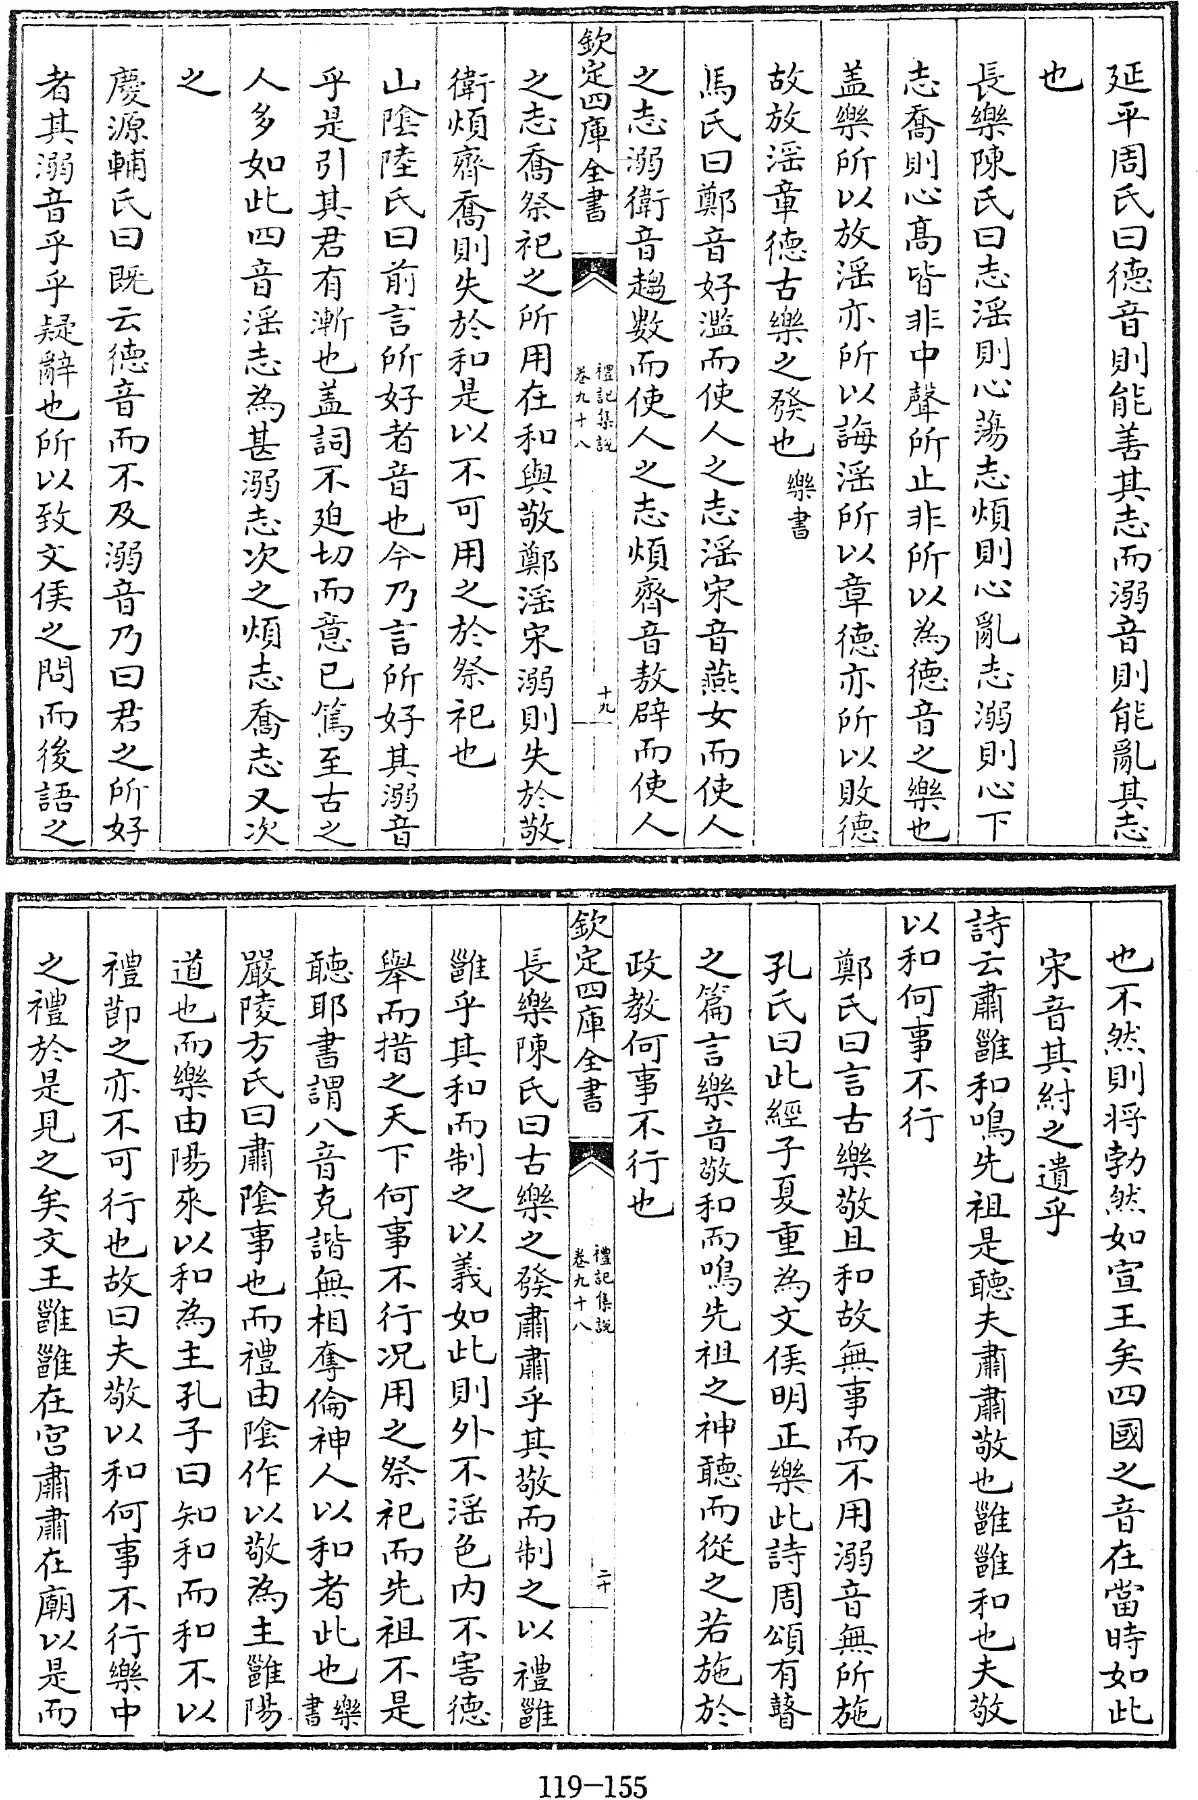 延平周氏曰德音則能善其志而溺音則能亂其志
也
長樂陳氏曰志淫則心蕩志煩則心亂志溺則心下
志喬則心高皆非中聲所止非所以為德音之樂也
盖樂所以放淫亦所以誨淫所以章德亦所以敗德
故放淫章德古樂之發也樂書
馬氏曰鄭音好濫而使人之志淫宋音燕女而使人
之志溺衛音趨數而使人之志煩齊音敖辟而使人
欽定四庫全書
禮記集説
卷九十八
十九
之志喬祭祀之所用在和與敬鄭淫宋溺則失於敬
衛煩齊喬則失於和是以不可用之於祭祀也
山隂陸氏曰前言所好者音也今乃言所好其溺音
乎是引其君有漸也盖詞不廹切而意已篤至古之
人多如此四音淫志為甚溺志次之煩志喬志又次
之
慶源輔氏曰既云德音而不及溺音乃曰君之所好
者其溺音乎乎疑辭也所以致文侯之問而後語之
也不然則将勃然如宣王矣四國之音在當時如此
宋音其紂之遺乎
詩云肅雝和鳴先祖是聽夫肅肅敬也雝雝和也夫敬
以和何事不行
鄭氏曰言古樂敬且和故無事而不用溺音無所施
孔氏曰此經子夏重為文侯明正樂此詩周頌有瞽
之篇言樂音敬和而鳴先祖之神聽而從之若施於
政教何事不行也
欽定四庫全書
禮記集説
卷九十八
二十
長樂陳氏曰古樂之發肅肅乎其敬而制之以禮雝
雝乎其和而制之以義如此則外不淫色内不害德
舉而措之天下何事不行况用之祭祀而先祖不是
聽耶書謂八音克諧無相奪倫神人以和者此也樂書
嚴陵方氏曰肅隂事也而禮由隂作以敬為主雝陽
道也而樂由陽來以和為主孔子曰知和而和不以
禮節之亦不可行也故曰夫敬以和何事不行樂中
之禮於是見之矣文王雝雝在宫肅肅在廟以是而
119-155